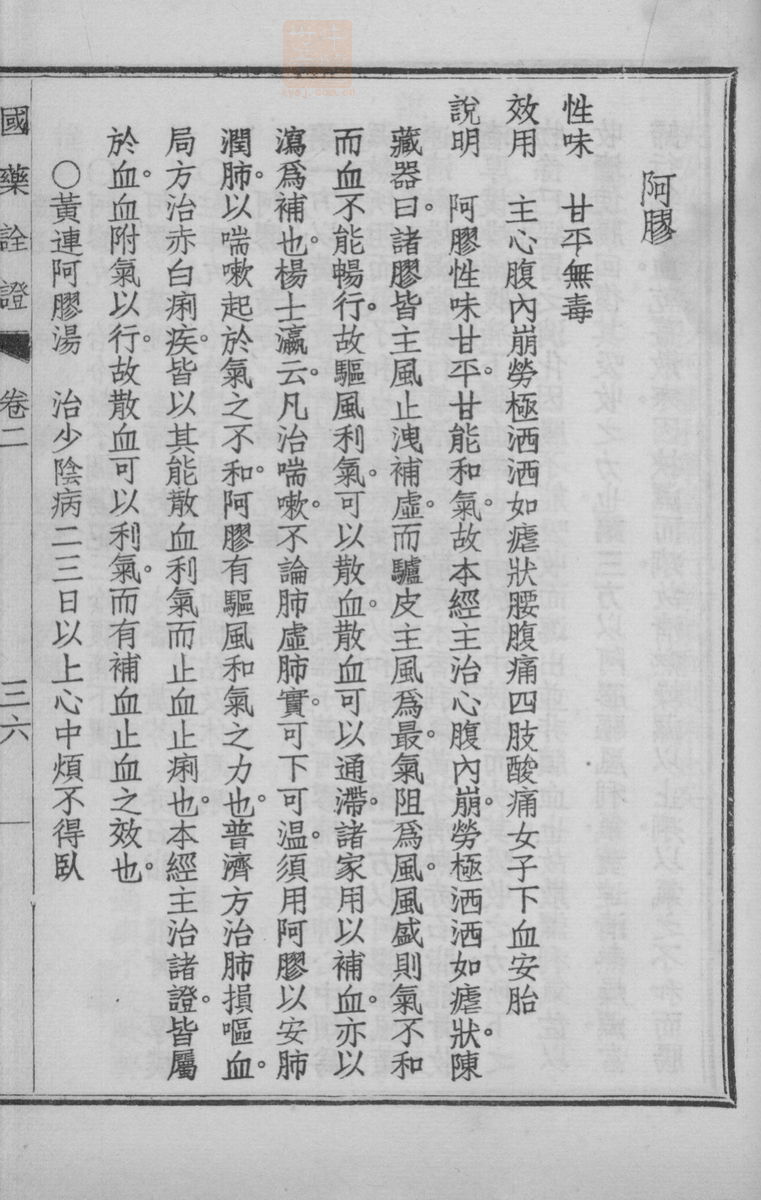 阿膠
性味　甘平無毒
效用　主心腹內崩勞極洒洒如瘧狀腰腹痛四肢酸痛女子下血安胎
說明　阿膠性味甘平。甘能和氣。故本經主治心腹內崩。勞極洒洒如瘧狀。陳
藏器曰。諸膠皆主風止洩補虛。而驢皮主風爲最。氣阻爲風。風盛則氣不和
而血不能暢行。故驅風利氣。可以散血。散血可以通滯。諸家用以補血。亦以
瀉爲補也。楊士瀛云。凡治喘嗽。不論肺虛肺實。可下可温。須用阿膠以安肺
潤肺。以喘嗽起於氣之不和。阿膠有驅風和氣之力也。普濟方治肺損嘔血。
局方治赤白痢疾。皆以其能散血利氣而止血止痢也。本經主治諸證。皆屬
於血。血附氣以行。故散血可以利氣。而有補血止血之效也。
○黃連阿膠湯　治少陰病二三日以上心中煩不得臥
國藥詮證　卷二　三六